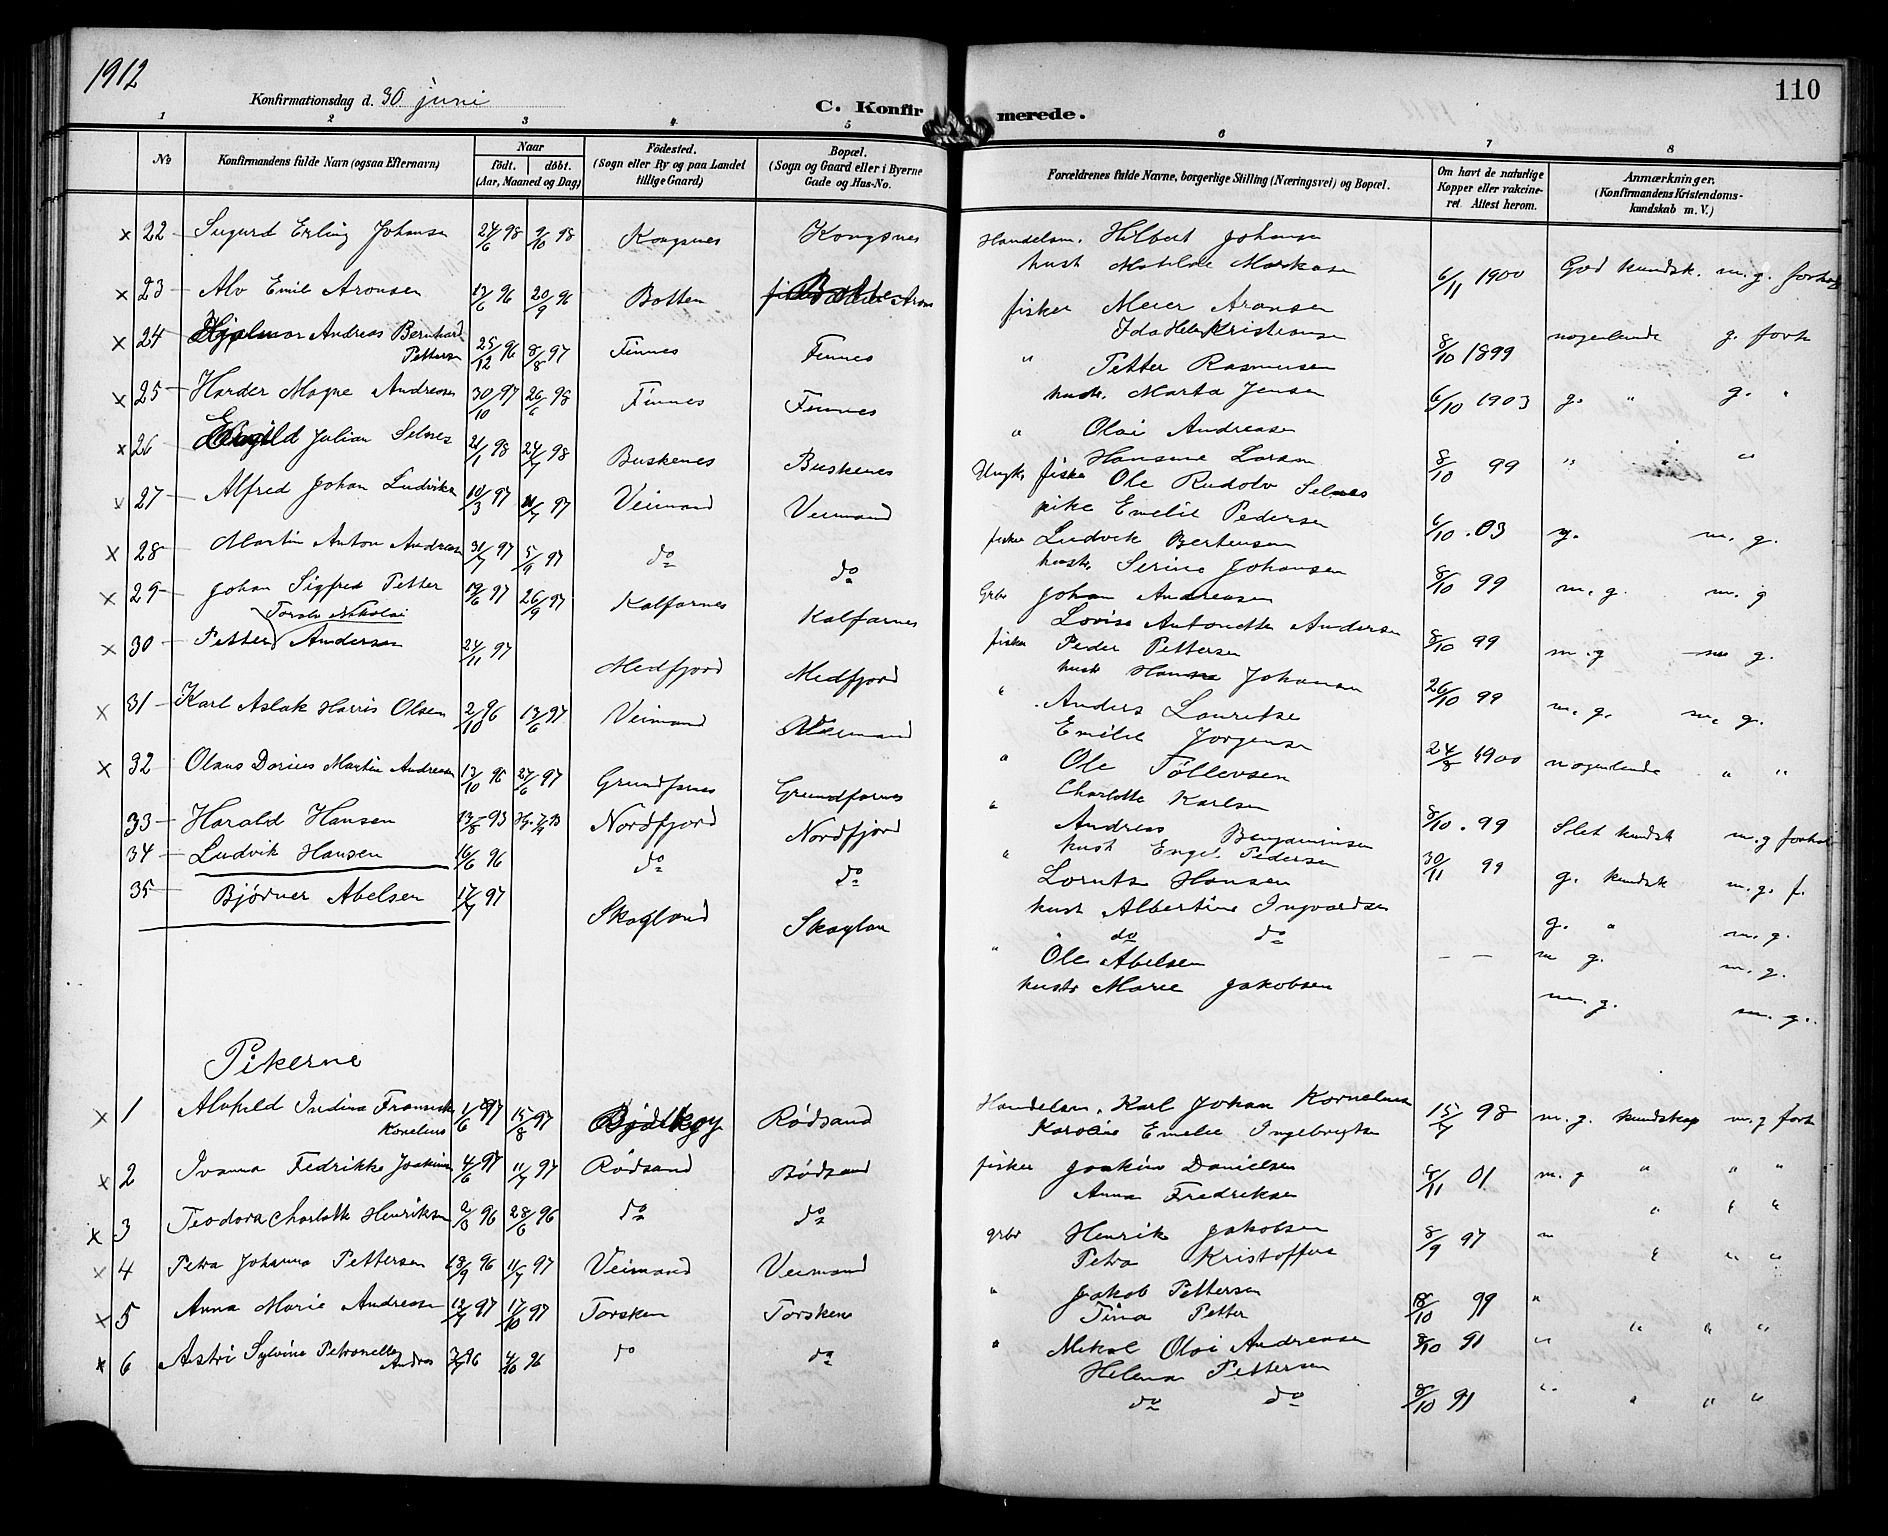 1912
110
Konfirmationsdag d. 30 juni
C. Konfirmerede.
1 2 3 4 5 6 7 8
No
Konfirmandens fulde Navn (ogsaa Efternavn)
Naar
födt. döbt.
(Aar, Maaned og Dag)
Födested.
(Sogn eller By og paa Landet
tillige Gaard)
Bopæl.
(Sogn og Gaard eller i Byerne
Gade og Hus-No.
Forældrenes fulde Navne, borgerlige Stilling (Næringsvei) og Bopæl.
Om havt de naturlige
Kopper eller vakcine-
ret Attest herom.
Anmærkninger.
(Konfirmandens Kristendoms-
kundskab m. V.)
x 22 Sigurd Erling Johansen 24/6 98 9/10 98 Kongsnes Kongsnes Handelsm. Hilbert Johansen
hust Matilde Markusen 6/11 1900 God kundsk. m. g. forhold
x 23 Alv Emil Aronsen 12/6 96 20/9 96 Botten fisker Meier Aronsen
Kristiansen 8/10 1899 nogenlunde g. forh
x 24 Hjalmar Andreas Bernhard
Pettersen 25/12 96 8/8 97 Finnes Finnes " Petter Rasmussen
hustr. Marta Jensen 6/10 1903 g. " g. "
x 25 Harder Magne Andreasen 30/10 97 26/6 98 Finnes Finnes " Olai Andreasen
Hansine Larsen 8/10 99 " "
x 26 Julian Selnes 21/1 98 24/7 98 Buskenes Buskenes Ungk. fisker Ole Rudolv Selnes
pike Emelie Pedersen 6/10 . 03 m. g.
27 Alfred Johan Ludviksen 10/3 97 11/7 97 Veimand Veimand fisker Ludvik Bertensen
hustr. Serine Johansen 8/10 99 m. g. m. g
x 28 Martin Anton Andreasen 31/7 97 5/9 97 do do Grbr Johan Andreasen
Lovise Antonette Andersen 8/10 99 m. g m. g.
x 29 Johan Sigfred Petter 19/6 97 26/9 97 Kalfarnes Kalfarnes fisker Peder Pettersen
hust Hansine Johansen 26/10 99 m. g. m. g.
x 30 Petter Torolv Nikolai Andersen 24/11 97 Medfjord Medfjord " Anders Lauritse
Emilie Jorgensen 24/8 1900 nogenlunde " "
x 31 Karl Aslak Harris Olsen 2/10 96 13/6 97 Veimand Veimand " Ole Töllevsen
Charlotte Karlsen 8/10 . 99 Slet kundsk m. g forhold
x 32 Olaus Dorius Martin Andreasen 12/10 96 27/6 97 Grundfarnes Grundfarnes " Andreas Benjaminsen
hust Engel Pedersen 30/11 99 g. kundsk m. g. f.
33 Harald Hansen 13/8 93 Nordfjord Nordfjord " Lornts Hansen
hust Albertine Ingvardsen g. " m. g.
34 Ludvik Hansen 16/6 96 do do do do m g. m. g.
35 Bjørner Abelsen 17/7 97 Skogland Skoglan " Ole Abelsen
hustr Marie Jakobsen m. g. m. g.
Pikerne
x 1 Alvhild Indina Fransiska
Kornelius 1/6 97 15/8 97 Rödsand Handelsm. Karl Johan Kornelius
Karoline Emelie Ingebrigtsen 15/7 98 m. g. kundskap m. g forh
x 2 Ivanna Fedrikke Joakimsen 4/6 97 11/7 97 Rödsand Rödsand fisker Joakim Danielsen
Anna Fredriksen 8/11 01 m. g " " "
x 3 Teodora Charlotte Henriksen 2/3 96 28/6 96 do do grbr Henrik Jakobsen
Petra Kristoffers 8/9 97 " " " "
x 4 Petra Johanna Pettersen 13/9 96 11/7 97 Veimand Veimand " Jakob Pettersen
Tina Petter 8/10 99 " " " "
x 5 Anna Marie Andreasen 12/7 97 17/10 97 Torsken Torsken " Mikal Olai Andreasen
Helena Pettersen 8/10 91 " " " "
x 6 Astri Sylvine Petronelle
Andres 96 4/10 96 do do do do 8/10 91 " " " "